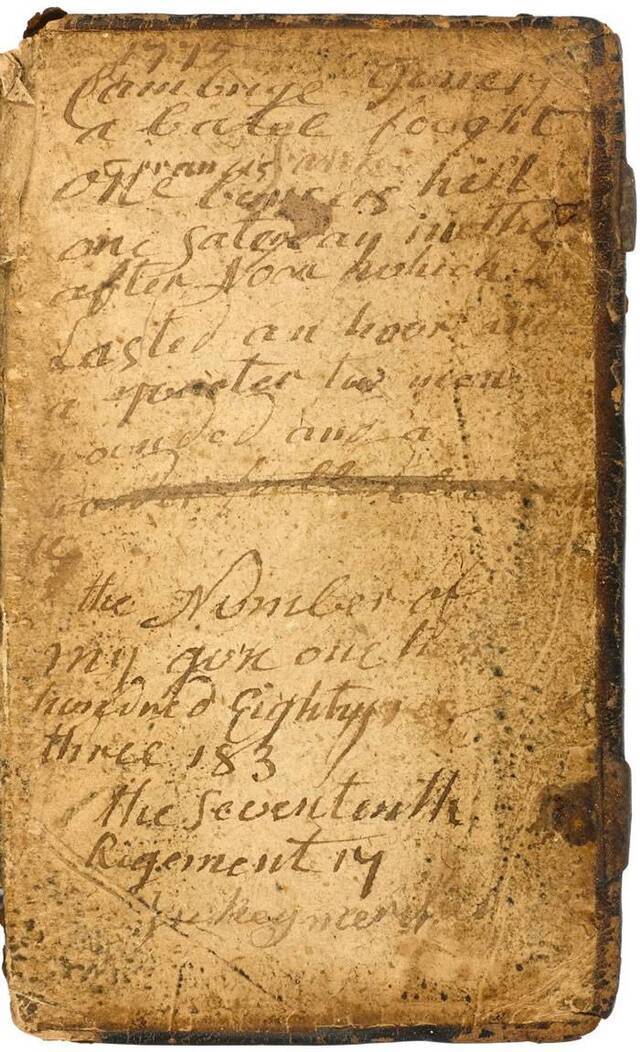 1775
Cambrige
a batel fought
Francis
one bunkers hill
one Saturday in the
after Noon which
Lasted an hoor and
a quarter two men
wounded and a
the Number of
my gun one
hundred Eighty
three 183
the Sevententh
Rigement 17